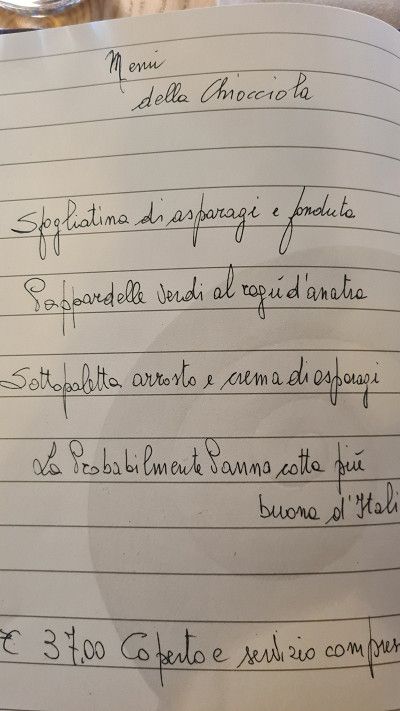 Menù
della Chiocciola
Sfogliatina di asparagi e fonduta
Pappardelle verdi al ragù d'anatra
Sottopaletta arrosto e crema di asparagi
La Probabilmente Panna cotta più
buona d'Itali
€ 37,00 Coperto e servizio compres